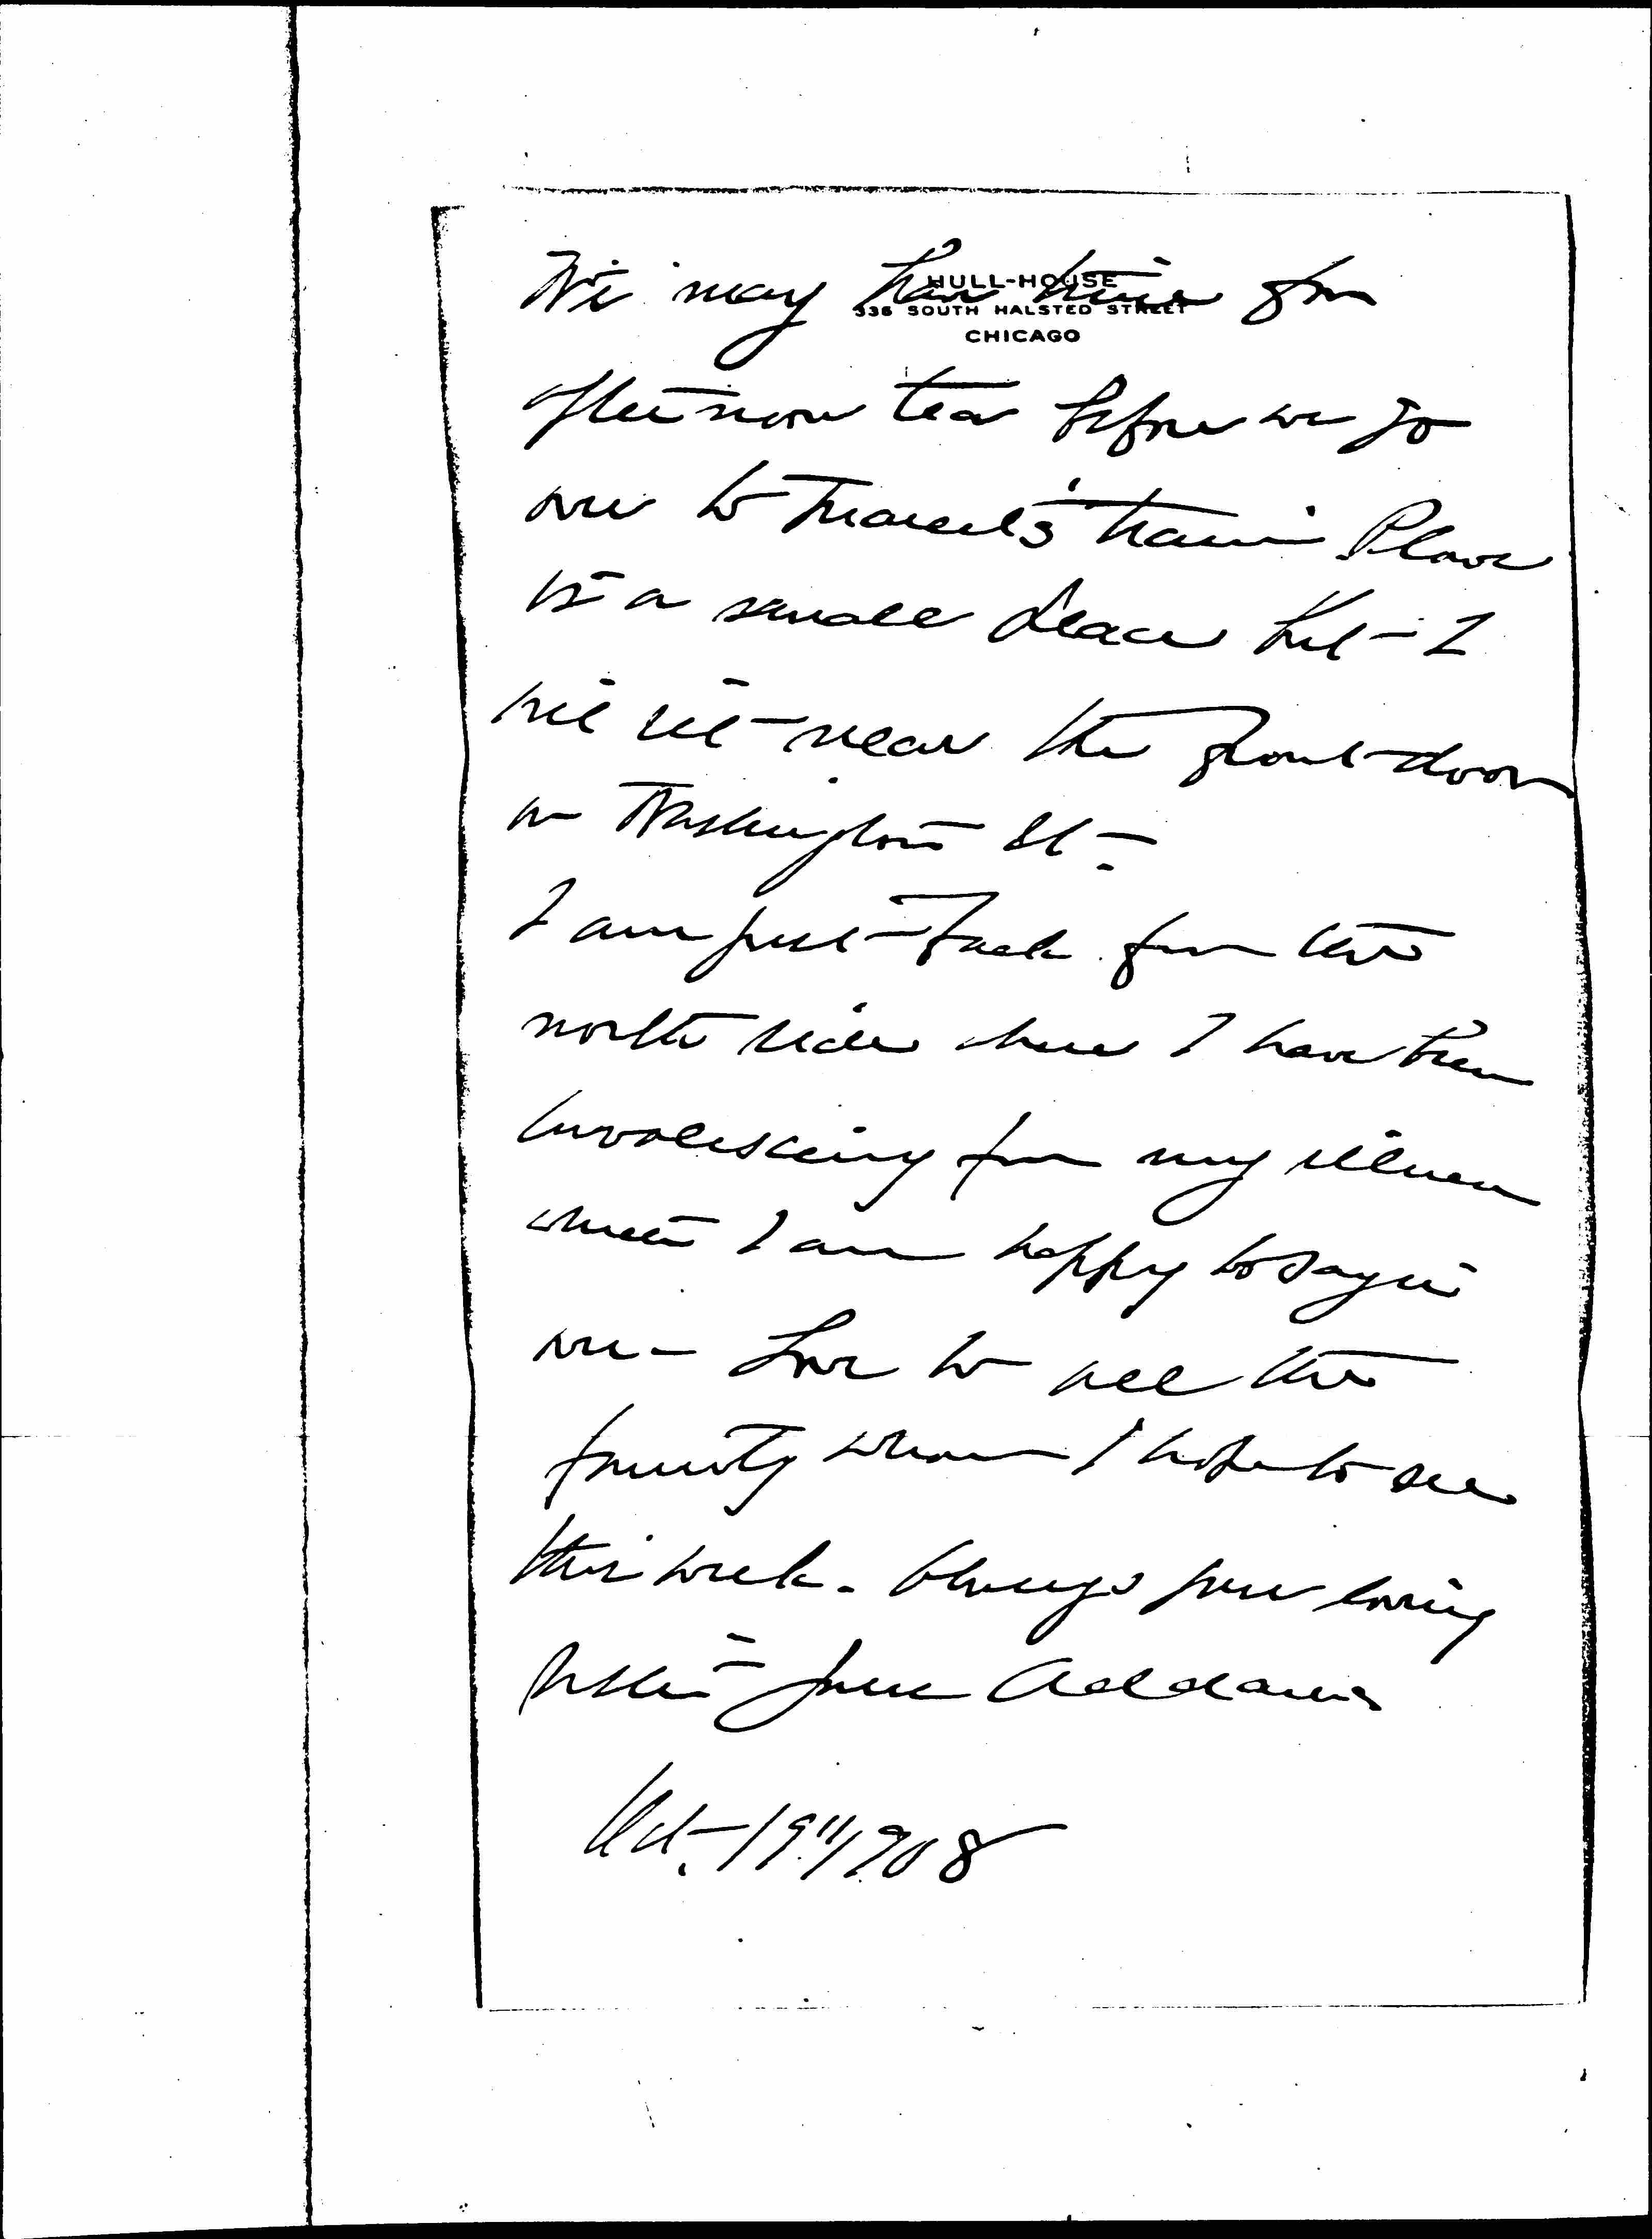 HULL-HOUSE
335 SOUTH HALSTED STREET
CHICAGO
We may have time for
afternoon tea before we go
over to Marcel's train. Plows
is a small place but I
will sit near the front door
on Washington St.
I am just back from the
north side where I have been
convalescing from my illness
which I am happy to say is
over - Love to all the
family whom I hope to see
this week. Always your loving
sister Jane Addams
Oct. 19" 1908